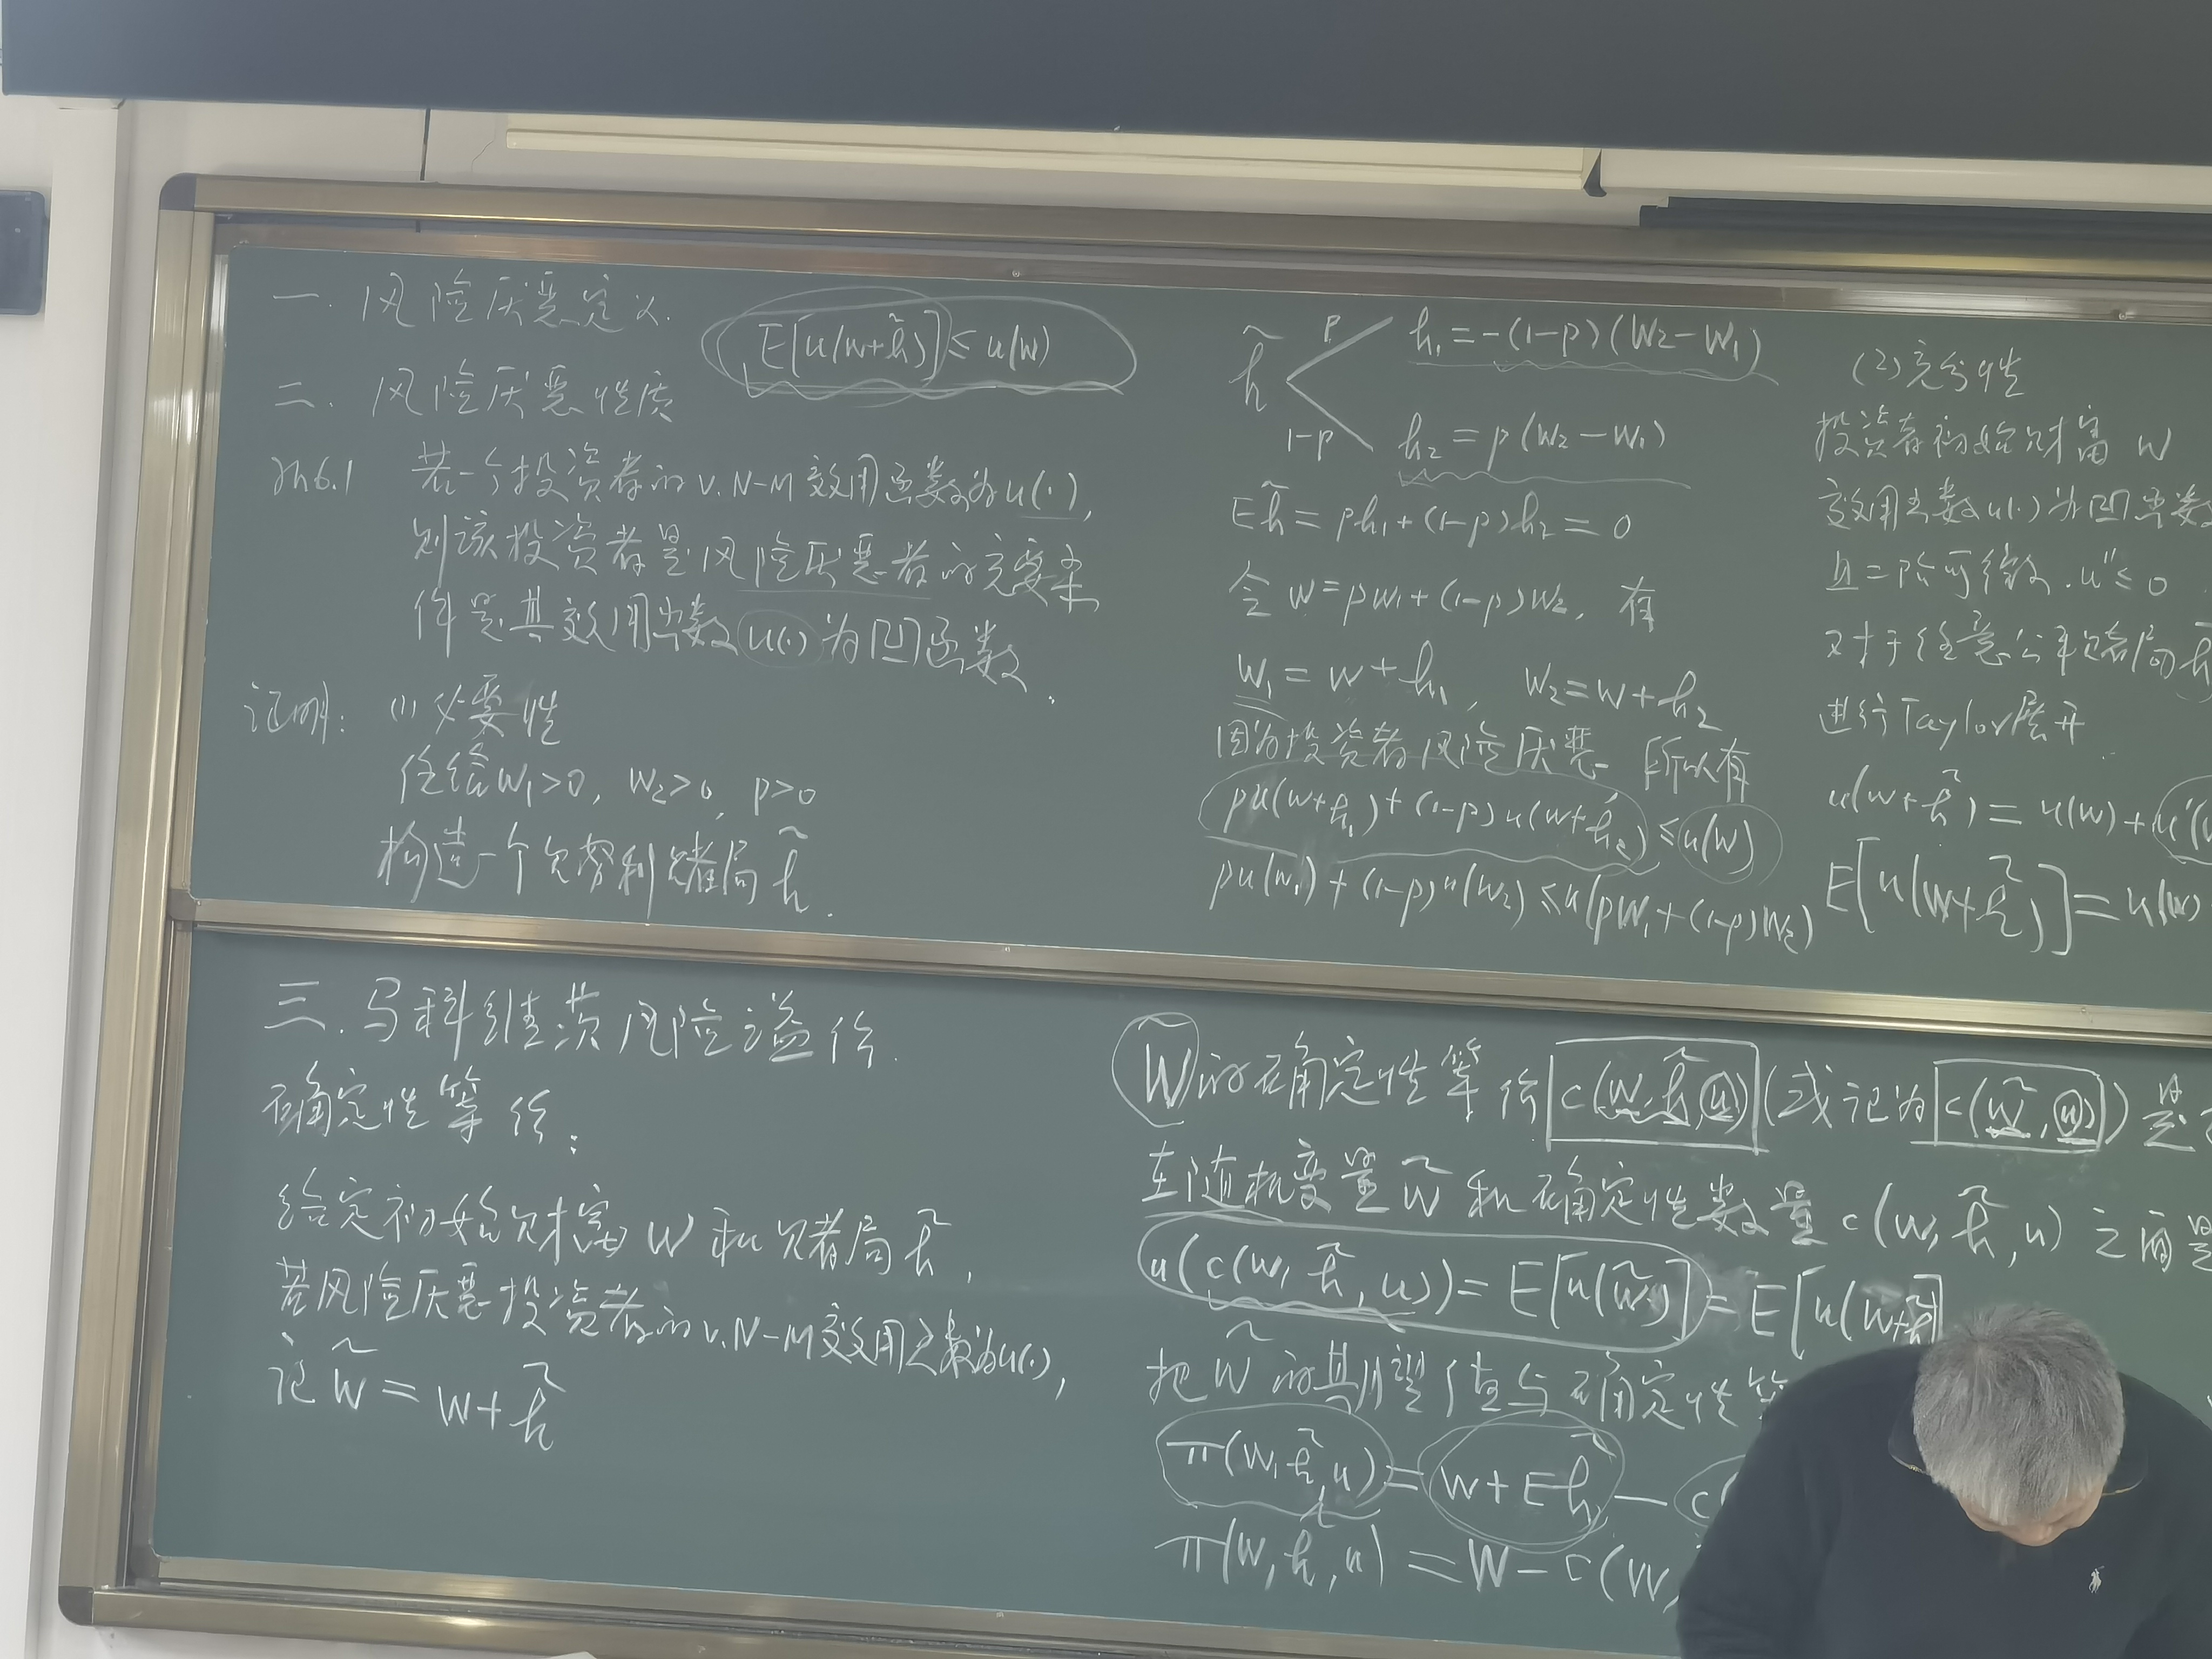 一. 风险厌恶定义.
E[u(w+h̃)] ≤ u(w)
二. 风险厌恶性质
Th6.1 若一个投资者的v.N-M效用函数为u(·),
则该投资者是风险厌恶者的充要条
件是其效用函数u(·)为凹函数.
证明: (1)必要性
任给w₁>0, w₂>0, p>0
构造一个伯努利赌局h̃.
h̃
p h₁=-(1-p)(w₂-w₁)
1-p h₂=p(w₂-w₁)
Eh̃=ph₁+(1-p)h₂=0
令w=pw₁+(1-p)w₂, 有
w₁=w+h₁, w₂=w+h₂
因为投资者风险厌恶 所以有
pu(w+h₁)+(1-p)u(w+h₂)≤u(w)
pu(w₁)+(1-p)u(w₂)≤u(pw₁+(1-p)w₂)
(2)充分性
投资者初始财富w
效用函数u(·)为凹函数
且二阶可微. u''≤0
对于任意公平赌局h̃
进行Taylor展开.
u(w+h̃)=u(w)+u'(
E[u(w+h̃)]=u(w)
三. 马科维茨风险溢价.
确定性等价:
给定初始财富w和赌局h̃,
若风险厌恶投资者的v.N-M效用函数为u(·),
记w̃=w+h̃
w̃的确定性等价c(w,h̃,u)(或记为c(w̃,u))是
在随机变量w̃和确定性数量c(w,h̃,u)之间是
u(c(w,h̃,u))=E[u(w̃)]=E[u(w+h̃)]
把w̃的期望值与确定性等
π(w,h̃,u)=w+Eh̃-c(
π(w,h̃,u)=w-c(w,